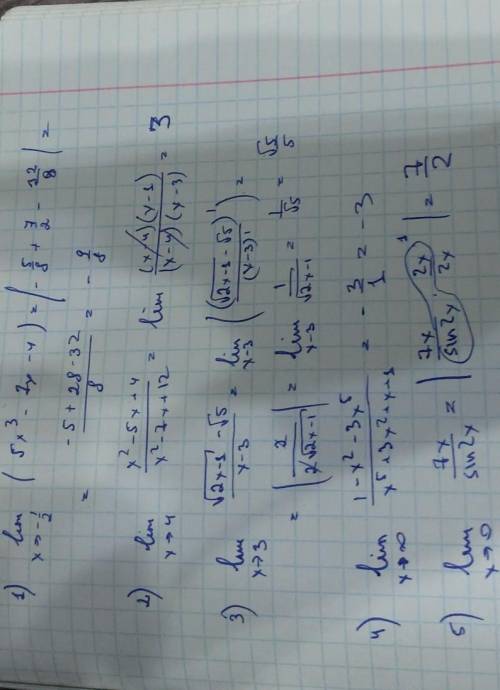 1) lim x→-1/2 (5x³ - 7x - 4) = | -5/8 + 7/2 - 32/8 | =
= (-5 + 28 - 32)/8 = -9/8
2) lim x→4 (x² - 5x + 4)/(x² - 7x + 12) = lim ((x-4)(x-1))/((x-4)(x-3)) = 3
3) lim x→3 (√(2x-1) - √5)/(x-3) = lim x→3 ((√(2x-1) - √5)'/(x-3)') =
= | 2/(2√(2x-1)) | = lim x→3 1/√(2x-1) = 1/√5 = √5/5
4) lim x→∞ (1 - x² - 3x⁵)/(x⁵ + 3x² + x + 1) = -3/1 = -3
5) lim x→0 7x/sin2x = | 7x/sin2x · 2x/2x | = 7/2